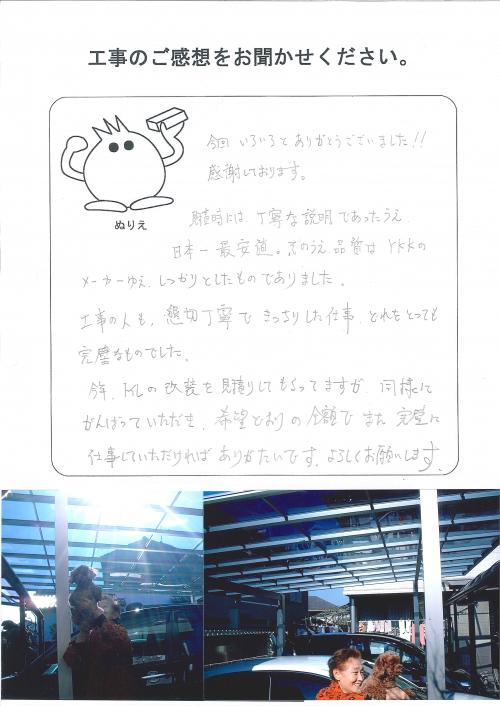 工事のご感想をお聞かせください。
ぬりえ
今回 いろいろと ありがとうございました!!
感謝しております。
時には、丁寧な説明であったうえ、
日本一最安値。そのうえ、品質は YKKの
メーカーゆえ、しっかりとしたものでありました。
工事の人も、懇切丁寧で きっちりした仕事、どれをとっても
完璧なものでした。
今年、トイレの改装を見積りしてもらってますが、同様に
がんばっていただき、希望どおりの金額で また 完璧に
仕事していただければ ありがたいです。よろしくお願いします。